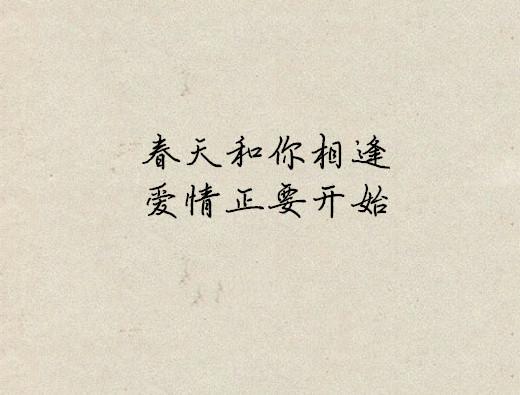 春天和你相逢
爱情正要开始